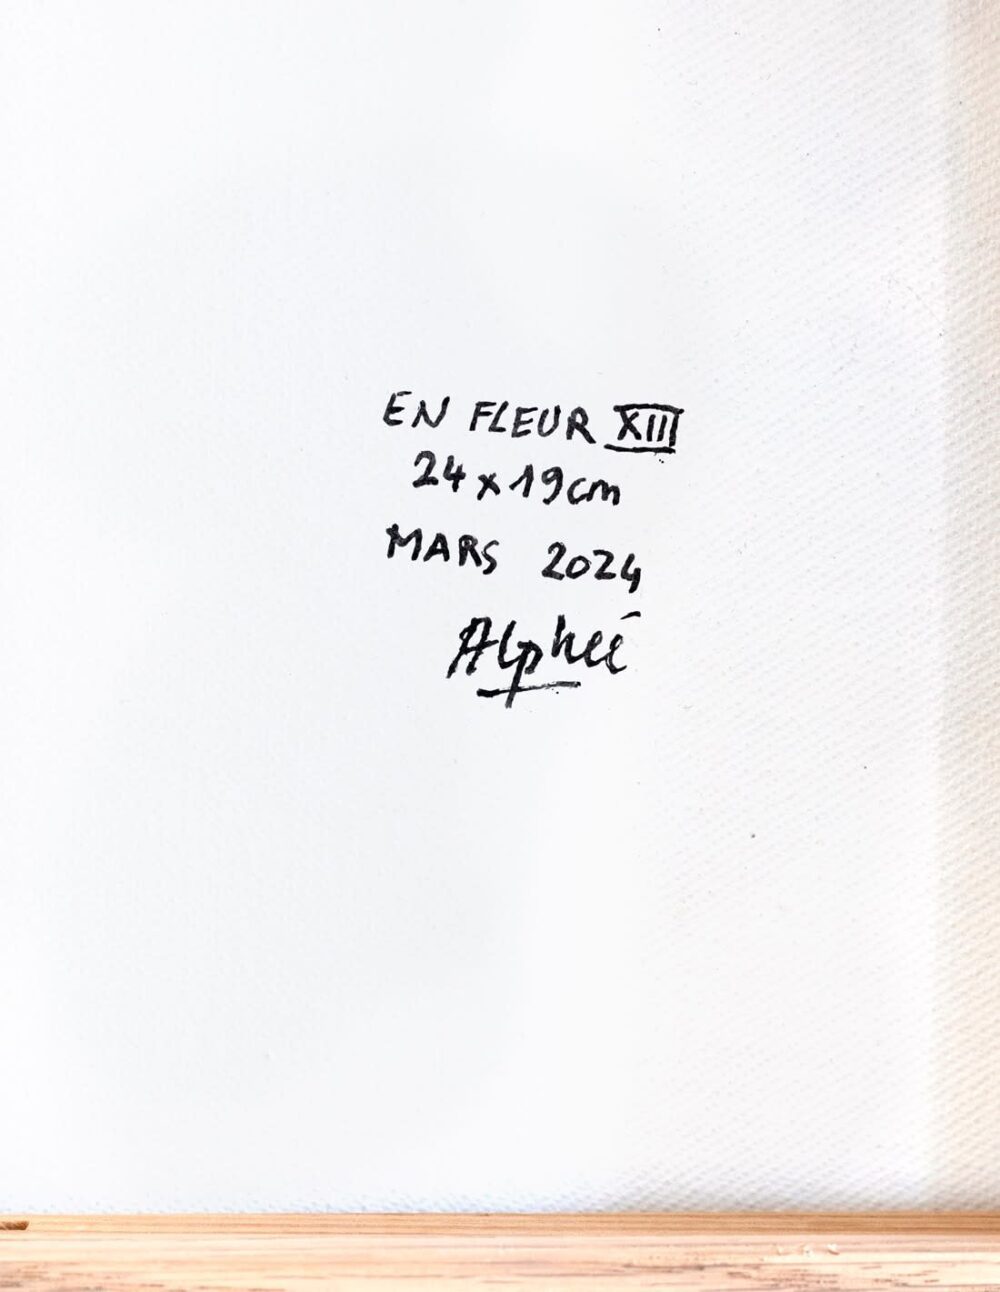 EN FLEUR XIII
24 x 19cm
MARS 2024
Alpheé